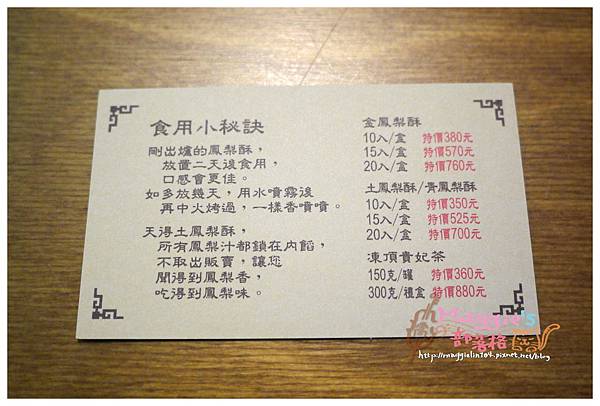 食用小秘訣
剛出爐的鳳梨酥，
放置二天後食用，
口感會更佳。
如多放幾天，用水噴霧後
再中火烤過，一樣香噴噴。
天得土鳳梨酥，
所有鳳梨汁都鎖在內餡，
不取出販賣，讓您
聞得到鳳梨香，
吃得到鳳梨味。
金鳳梨酥
10入/盒 特價380元
15入/盒 特價570元
20入/盒 特價760元
土鳳梨酥/青鳳梨酥
10入/盒 特價350元
15入/盒 特價525元
20入/盒 特價700元
凍頂貴妃茶
150克/罐 特價360元
300克/禮盒 特價880元
Maggie's
部落格
http://maggielin104.pixnet.net/blog